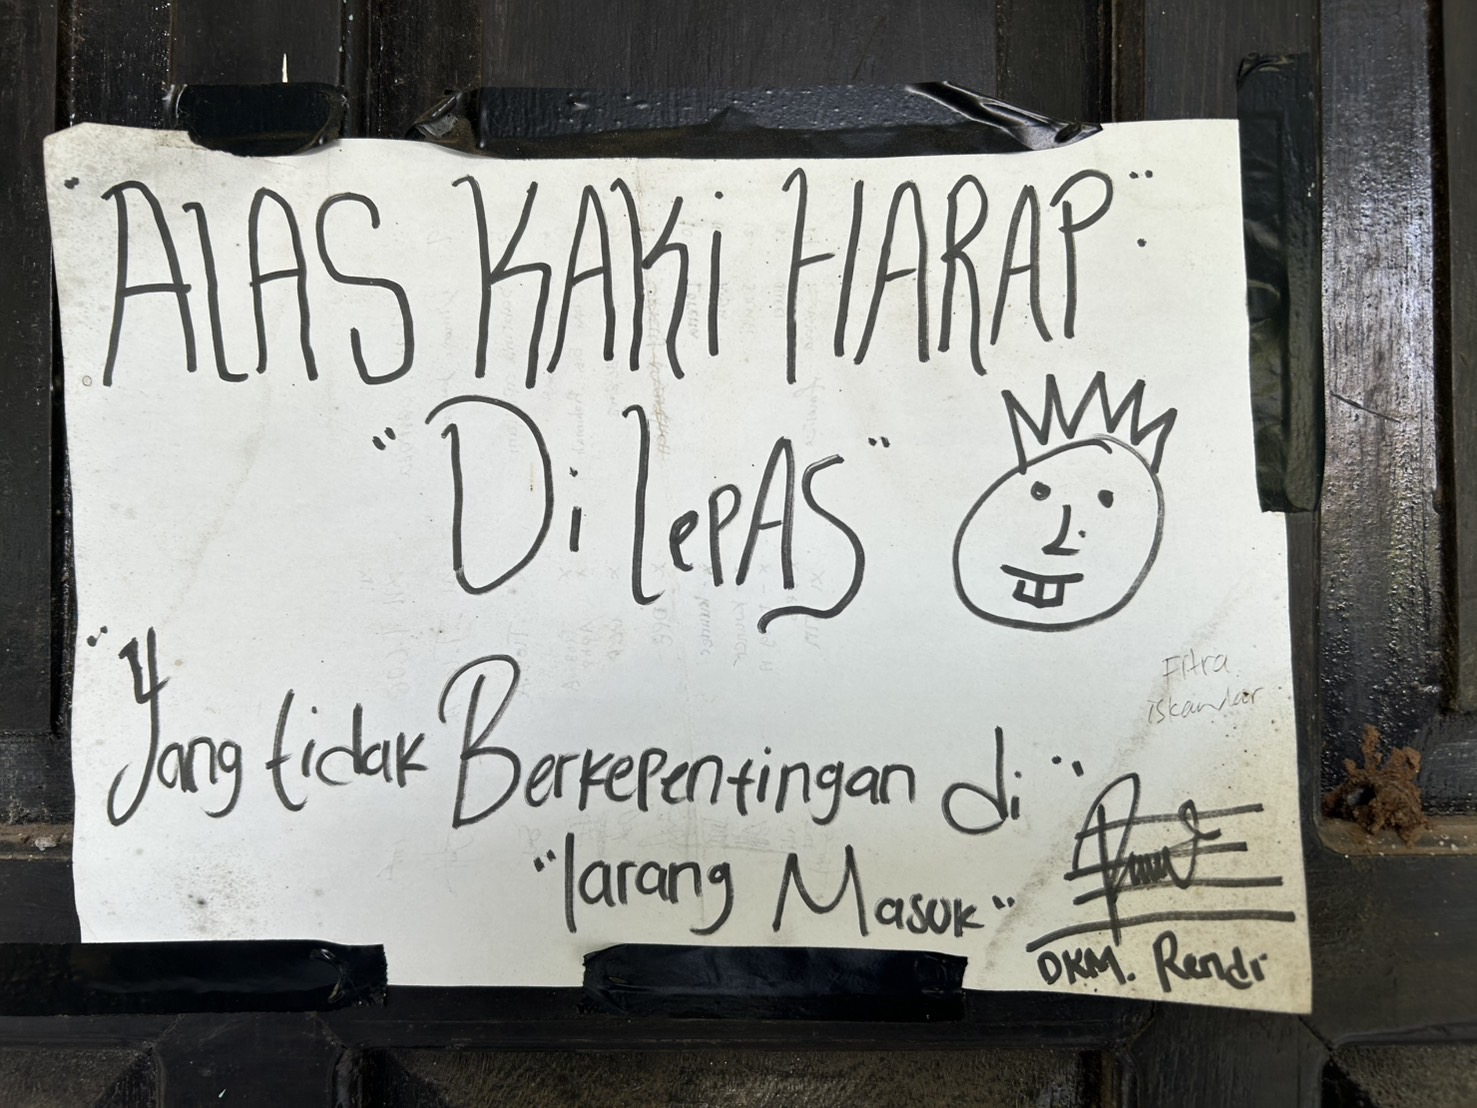 "ALAS KAKi HARAP":
"Di lepAS"
"Yang tidak Berkepentingan di"
"larang Masuk"
Fitra
iskandar
DKM. Rendi